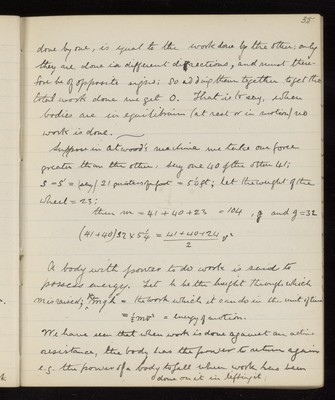 35
done by one, is equal to the work done by the other: only
they are done in different directions, and must there-
fore be of opposite signs: so adding them together to get the
total work done we get 0. That is to say, when
bodies are in equilibrium (at rest or in motion) no
work is done.
Suppose in Atwood's machine we take one force
greater than the other. Say one 40 & the other 41;
S = S' = (say) 21 quarters of a foot = 5¼ft; Let the weight of the
wheel = 23;
then m = 41 + 40 + 23 = 104, & and g = 32
(41+40)32 × 5¼ = 41+40+24 / 2 v²
A body with power to do work is said to
possess energy. Let h be the height through which
m is raised; then mgh = the work which it can do in the unit of time
= ½mv² = energy of motion.
We have seen that when work is done against an active
resistance, the body has the power to return again
e.g. the power of a body to fall when work has been
done on it in lifting it.